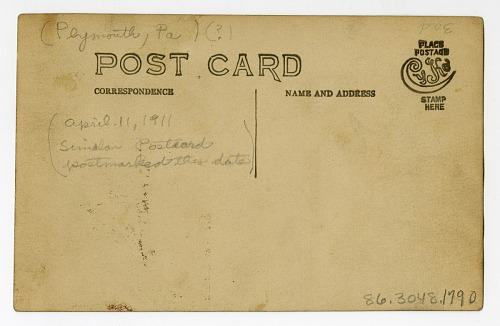 (Plymouth, Pa) (?)
POST CARD
CORRESPONDENCE
NAME AND ADDRESS
PLACE
POSTAGE
STAMP
HERE
(April 11, 1911
Similar Postcard
postmarked this date)
86.3048.1790